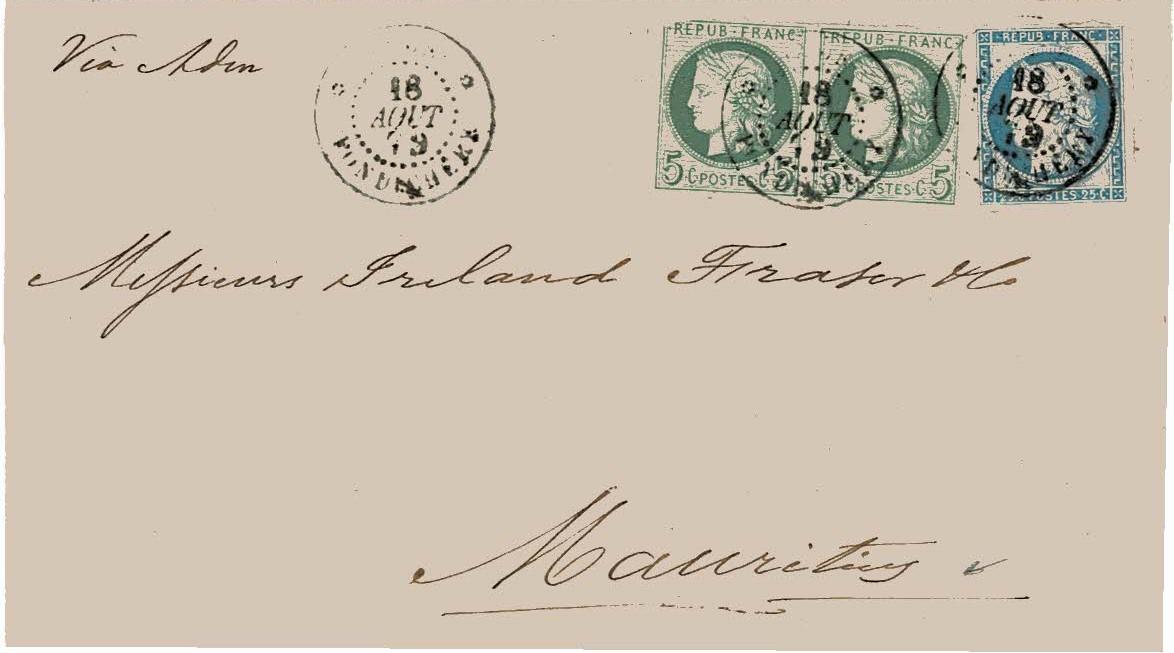 Via Aden
18
AOUT
79
PONDICHERY
REPUB · FRANC
5 · C · POSTES · C · 5
REPUB · FRANC
5 · C · POSTES · C · 5
18
AOUT
79
PONDICHERY
REPUB · FRANC
25 C · POSTES · 25 C
18
AOUT
79
PONDICHERY
Messieurs Ireland Fraser & Co
Mauritius